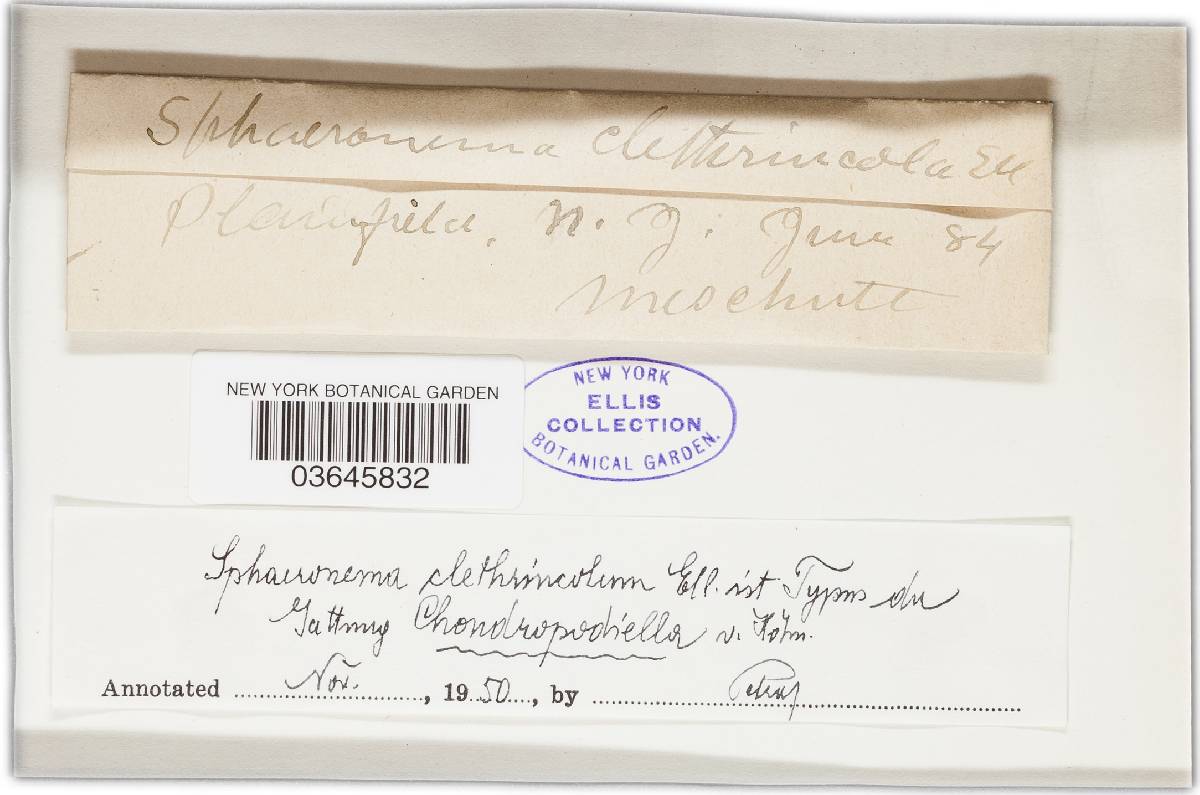 Sphaeronema cletherincola Ell
Plainfield, N. J. June 84
Meschutt
NEW YORK BOTANICAL GARDEN
03645832
NEW YORK
ELLIS
COLLECTION
BOTANICAL GARDEN.
Sphaeronema clethrincolum Ell. ist Typus der
Gattung Chondropodiella v. Höhn.
Annotated Nov., 1950, by Petrak